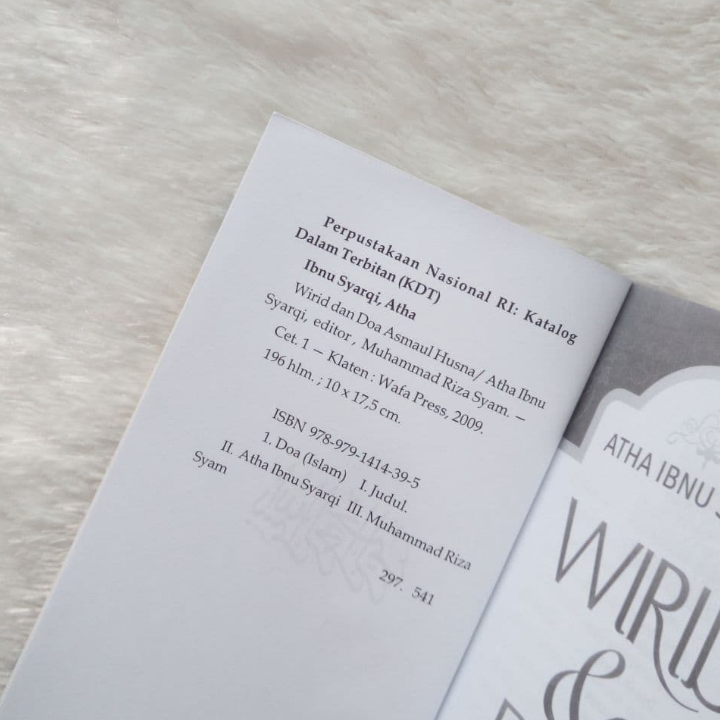 Perpustakaan Nasional RI: Katalog
Dalam Terbitan (KDT)
Ibnu Syarqi, Atha
Wirid dan Doa Asmaul Husna/ Atha Ibnu
Syarqi, editor , Muhammad Riza Syam. —
Cet. 1 — Klaten : Wafa Press, 2009.
196 hlm. ; 10 x 17,5 cm.
ISBN 978-979-1414-39-5
1. Doa (Islam) I. Judul.
II. Atha Ibnu Syarqi III. Muhammad Riza
Syam
297. 541
ATHA IBNU
WIRI
&